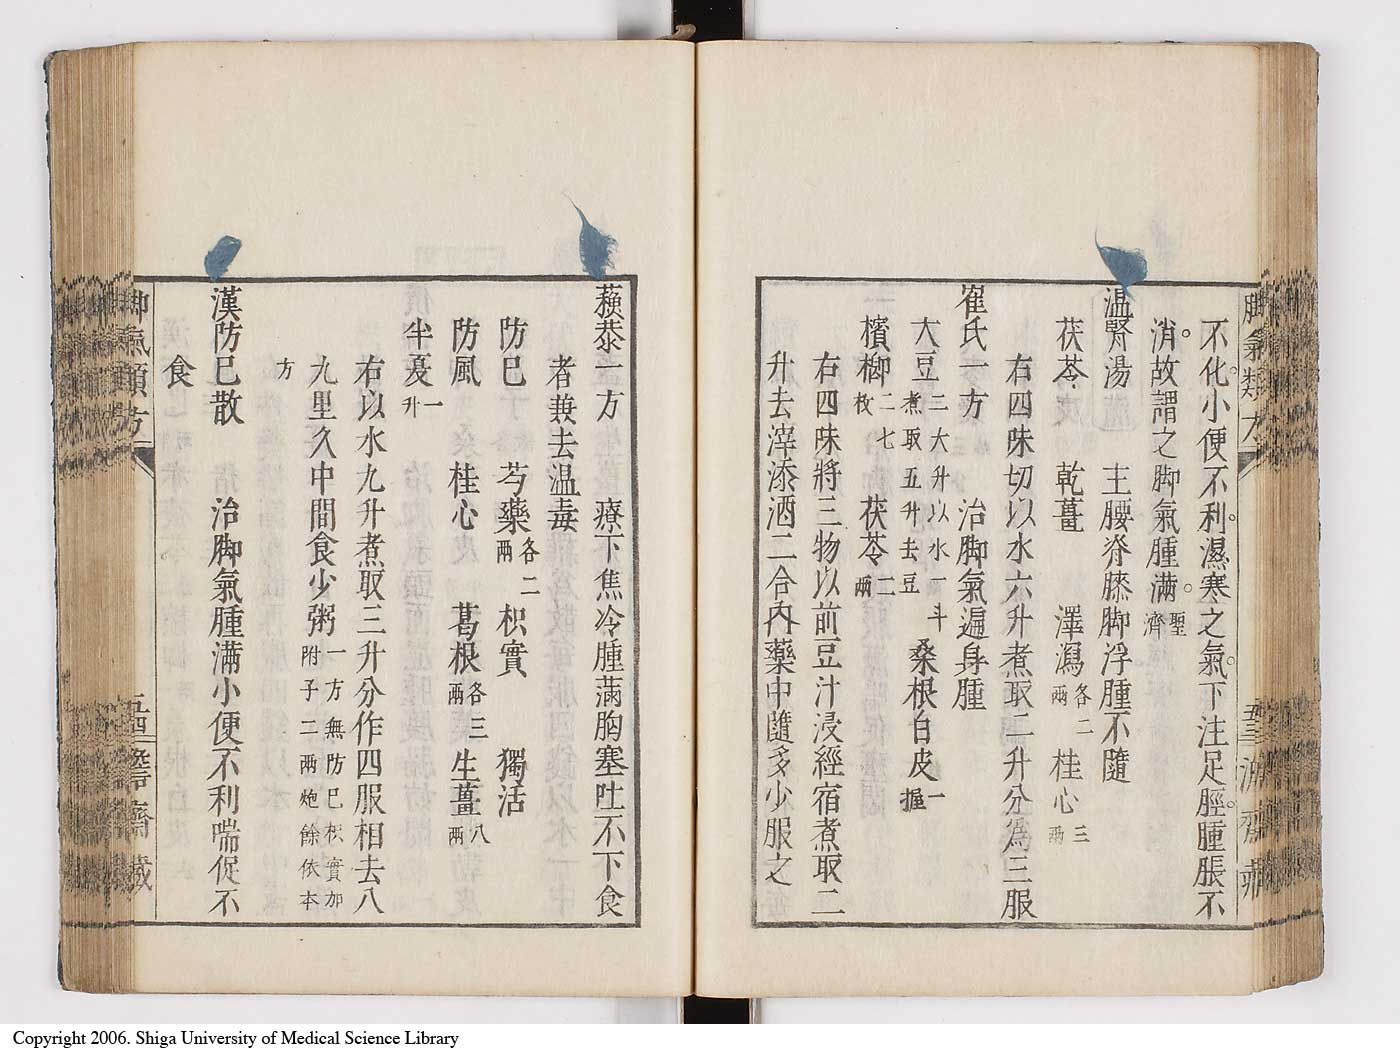 不化小便不利濕寒之氣下注足脛腫脹不
消故謂之脚氣腫滿 聖濟
温腎湯 主腰脊膝脚浮腫不隨
茯苓 乾薑 澤瀉 各二兩 桂心 三兩
右四味切以水六升煮取二升分為三服
崔氏一方 治脚氣遍身腫
大豆 二大升以水一斗煮取五升去豆 桑根白皮 一握
檳榔 二七枚 茯苓 二兩
右四味將三物以前豆汁浸經宿煮取二
升去滓添酒二合內藥中隨多少服之
蘓恭一方 療下焦冷腫滿胸塞吐不下食
者兼去温毒
防巳 芍藥 各二兩 枳實 獨活
防風 桂心 葛根 各三兩 生薑 八兩
半夏 一升
右以水九升煮取三升分作四服相去八
九里久中間食少粥 一方無防巳枳實加附子二兩炮餘依本方
漢防巳散 治脚氣腫滿小便不利喘促不
食
脚氣類方
五四
藏
Copyright 2006. Shiga University of Medical Science Library